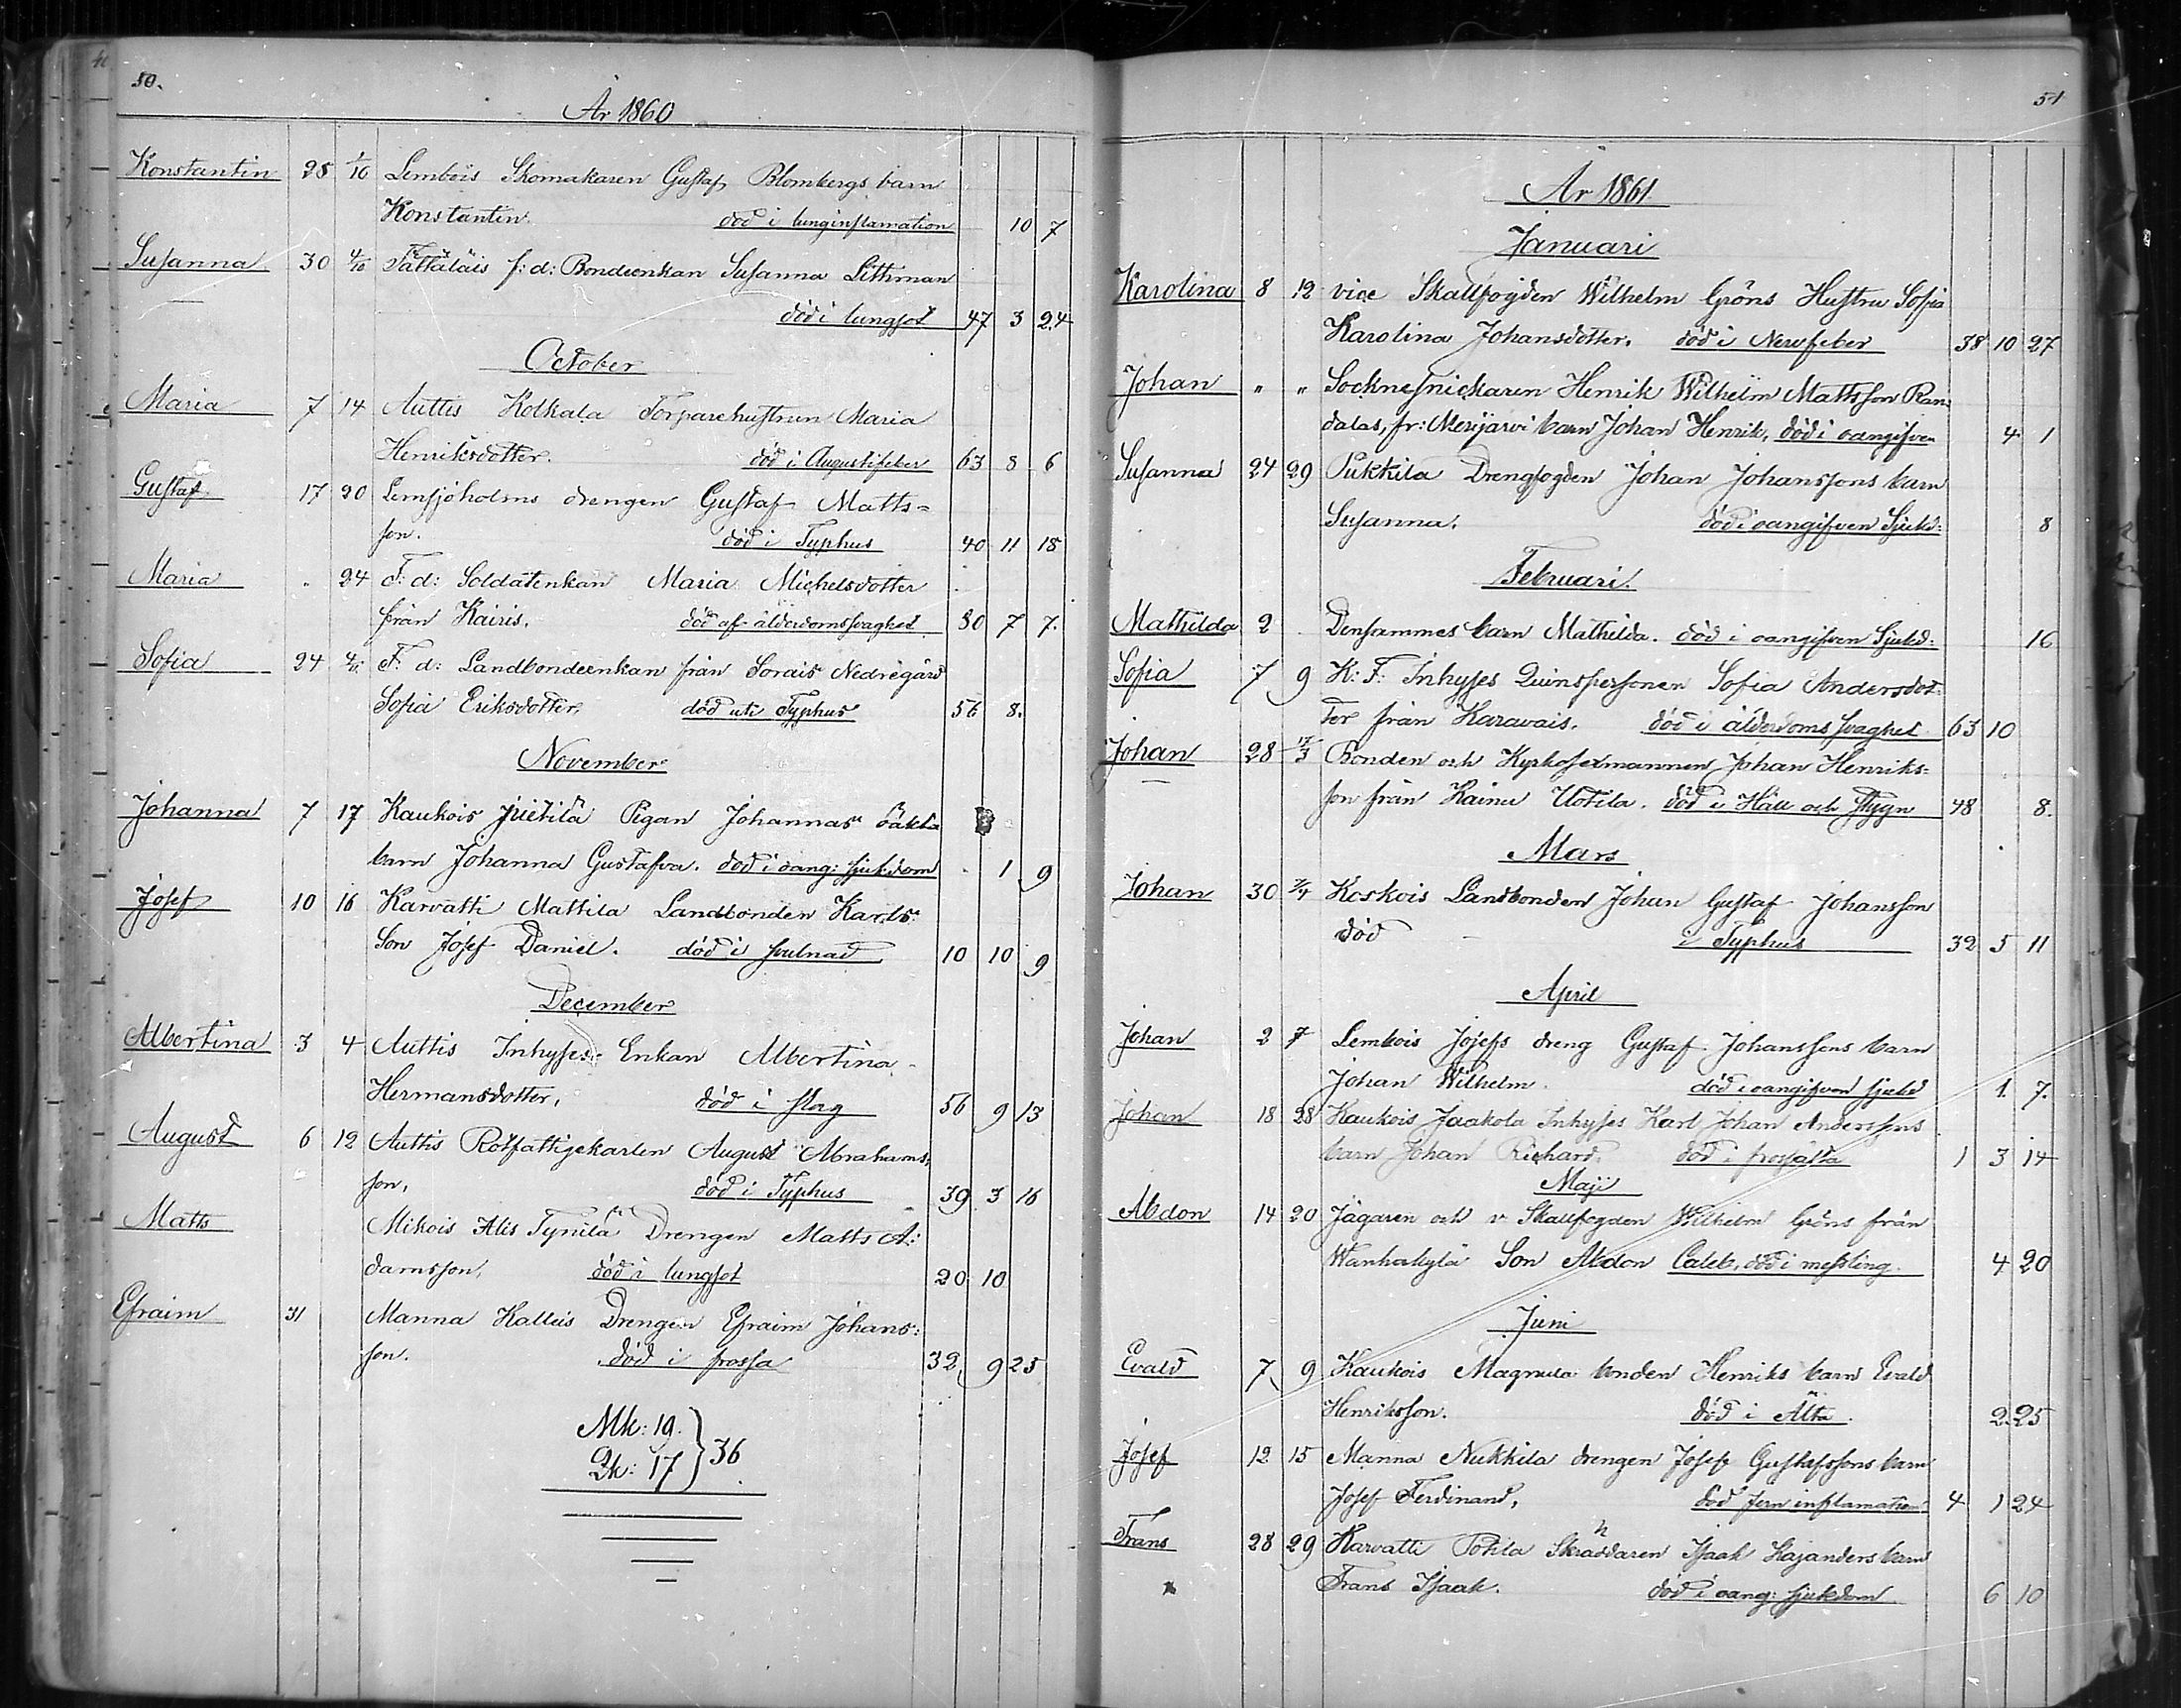 50.
År 1860
Konstantin 25 1/10 Lembois Skomakaren Gustaf Blombergs barn
Konstantin. död i lunginflamation 10 7
Susanna 30 4/10 Tättäläis f: d: Bondeenkan Susanna Lithman
död i lungsot 47 3 24
October
Maria 7 14 Auttis Kolkala Torparehustrun Maria
Henriksdotter. död i Augustifeber 63 8 6
Gustaf 17 20 Lemsjöholms drengen Gustaf Matts=
son. död i Typhus 40 11 18
Maria " 24 F: d: Soldatenkan Maria Michelsdotter
från Kairis. död af ålderdomssvaghet 80 7 7.
Sofia 24 F: d: Landbondeenkan från Sorais Nedregård
Sofia Eriksdotter. död uti Typhus 56 8.
November
Johanna 7 17 Kaukois Pietilä Pigan Johannas oäkta
barn Johanna Gustafva. död i oang: sjukdom 1 9
Josef 10 16 Karvatti Mattila Landbonden Karls
Son Josef Daniel. död i svulnad 10 10 9
December
Albertina 3 4 Auttis Inhyses Enkan Albertina
Hermansdotter, död i slag 56 9 13
August 6 12 Auttis Rotfattigekarlen August Abrahams:
son, död i Typhus 39 3 16
Matts Mikois Alis Tynilä Drengen Matts A:
damsson, död i lungsot 20 10
Efraim 31 Manna Kalleis Drengen Efraim Johans:
son. död i frossa 32 9 25
Mk: 19.
Qk: 17 } 36
51
År 1861.
Januari
Karolina 8 12 vice Skallfogden Wilhelm Gröns Hustru Sofia
Karolina Johansdotter. död i Nervfeber 38 10 27
Johan " " Socknesnickaren Henrik Wilhelm Mattsson Ran:
dalas, fr: Merijärvi barn Johan Henrik, död i oangifven 4 1
Susanna 24 29 Pukkila Drengfogden Johan Johanssons barn
Susanna. död i oangifven Sjukd: 8
Februari.
Mathilda 2 Densammes barn Mathilda. död i oangifven Sjukd: 16
Sofia 7 9 K: F: Inhyses Quinspersonen Sofia Andersdot:
ter från Karavais. död i ålderdoms svaghet 63 10
Johan 28 17/3 Bonden och Kyrkosexmannen Johan Henriks=
son från Kainu Uotila. död i Håll och Stygn 48 8.
Mars
Johan 30 7/4 Koskois Landbonden Johan Gustaf Johansson
död i Typhus 32 5 11
April
Johan 2 7 Lembois Josefs dreng Gustaf Johanssons barn
Johan Wilhelm. död i oangifven sjukd 1. 7.
Johan 18 28 Kaukois Jaakola Inhyses Karl Johan Anderssons
barn Johan Richard. död i frosjälta 1 3 14
Maji
Abdon 14 20 Jägaren och v. Skallfogden Wilhelm Gröns från
Wanhakylä Son Abdon Caleb, död i messling. 4 20
Juni
Evald 7 9 Kaukois Magnula bonden Henriks barn Evald
Henriksson. död i Älta 2 25
Josef 12 15 Manna Nukkila drengen Josef Gustafssons barn
Josef Ferdinand, död inflamation 4 1 24
Frans 28 29 Karvatti Potila Skräddaren Isaak Kajanders barn
Frans Isaak. död i oang: sjukdom 6 10